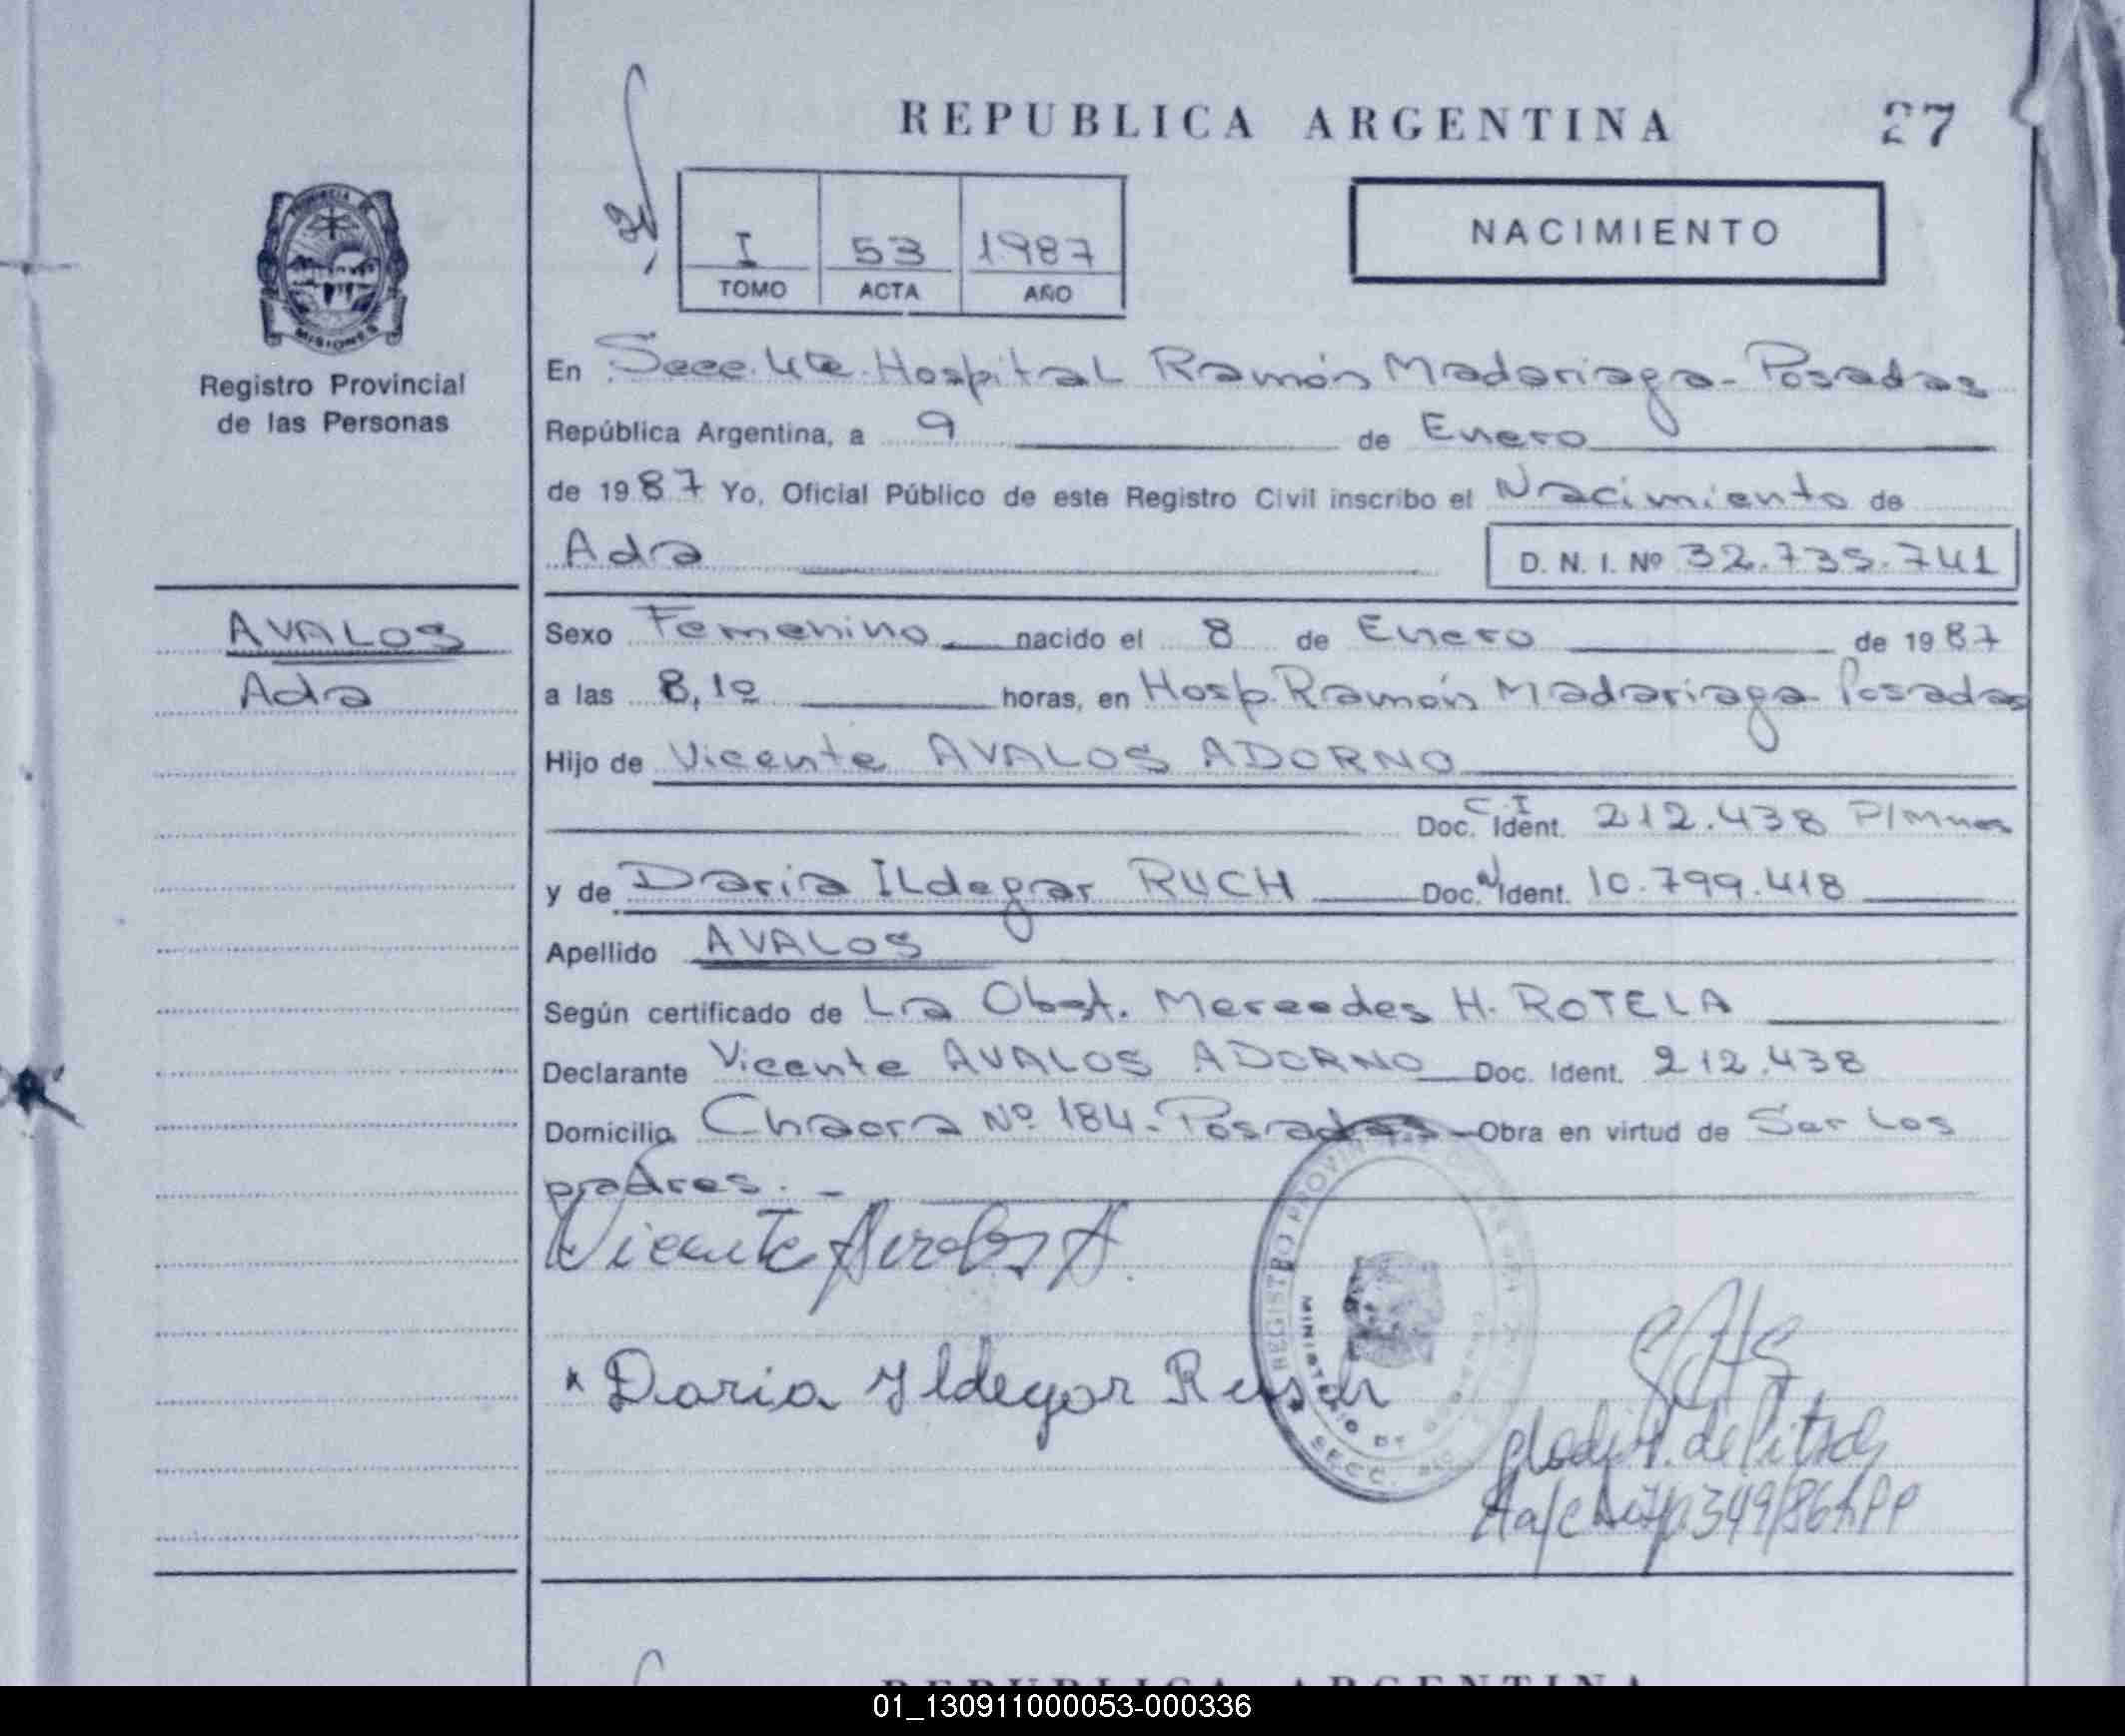 REPUBLICA ARGENTINA
27
NACIMIENTO
I 53 1987
TOMO ACTA AÑO
PROVINCIA DE
MISIONES
Registro Provincial
de las Personas
AVALOS
Ada
En Secc. 4ta. Hospital Ramón Madariaga - Posadas
República Argentina, a 9 de Enero
de 1987 Yo, Oficial Público de este Registro Civil inscribo el Nacimiento de
Ada D. N. I. Nº 32.735.741
Sexo Femenino nacido el 8 de Enero de 1987
a las 8,10 horas, en Hosp. Ramón Madariaga Posadas
Hijo de Vicente AVALOS ADORNO
C. I
Doc. Ident. 212.438 P/Mnes
y de Daria ILdegar RUCH Doc. Ident. 10.799.418
Apellido AVALOS
Según certificado de La Obst. Mercedes H. ROTELA
Declarante Vicente AVALOS ADORNO Doc. Ident. 212.438
Domicilio Chacra Nº 184 - Posadas Obra en virtud de Ser Los
padres. -
Vicente Avalos A.
Daria Yldegar Rusch
REGISTRO PROVINCIAL
MINISTERIO DE
SECC.
349/86
REPUBLICA ARGENTINA
01_130911000053-000336